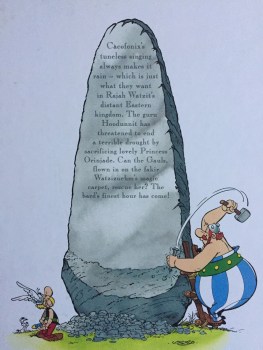 Cacofonix's
tuneless singing
always makes it
rain – which is just
what they want
in Rajah Watzit's
distant Eastern
kingdom. The guru
Hoodunnit has
threatened to end
a terrible drought by
sacrificing lovely Princess
Orinjade. Can the Gauls,
flown in on the fakir
Watziznehm's magic
carpet, rescue her? The
bard's finest hour has come!